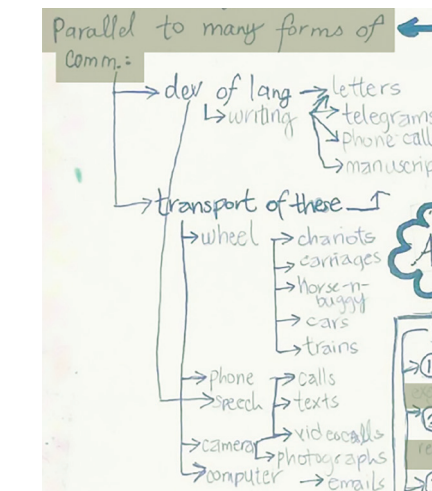 Parallel to many forms of
comm.:
dev of lang → letters
↳ writing → telegrams
phone call
manuscrip
transport of these
→ wheel → chariots
→ carriages
→ horse-n-
buggy
→ cars
→ trains
→ phone → calls
→ speech → texts
→ camera → videocalls
→ photographs
→ computer → emails